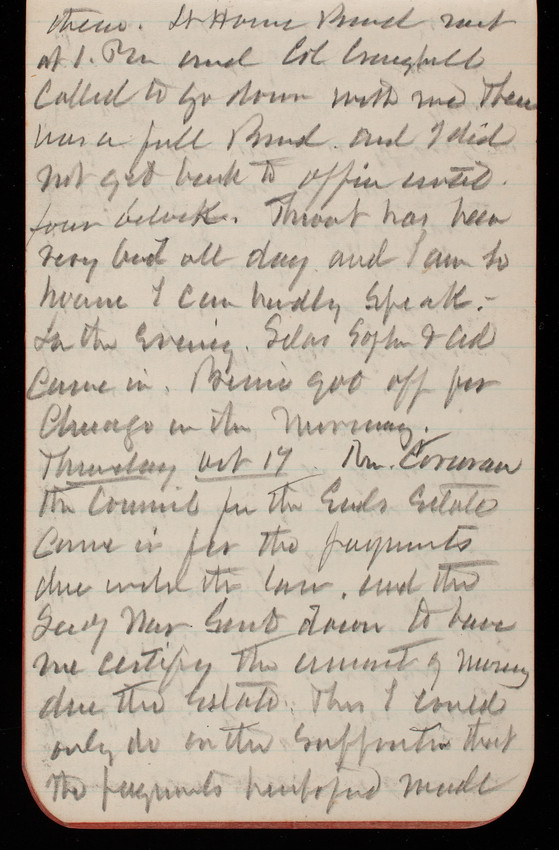 there. Lt Home Board met
at 1. Pm and Col Craighill
called to go down with me There
was a full Board and I did
not get back to office until
four oclock. Throat has been
very bad all day and I am so
hoarse I can hardly speak.-
In the Evening. Sophie & 
came in. got off for
Chicago in the Morning.
Thursday Oct 17 Mr. Corcoran
the Council for the Eads Estate
came in for the payments
due under the law. and the
Secy War sent down to have
me certify the amount of money
due the Estate. This I could
only do on the supposition that
the payments heretofore made